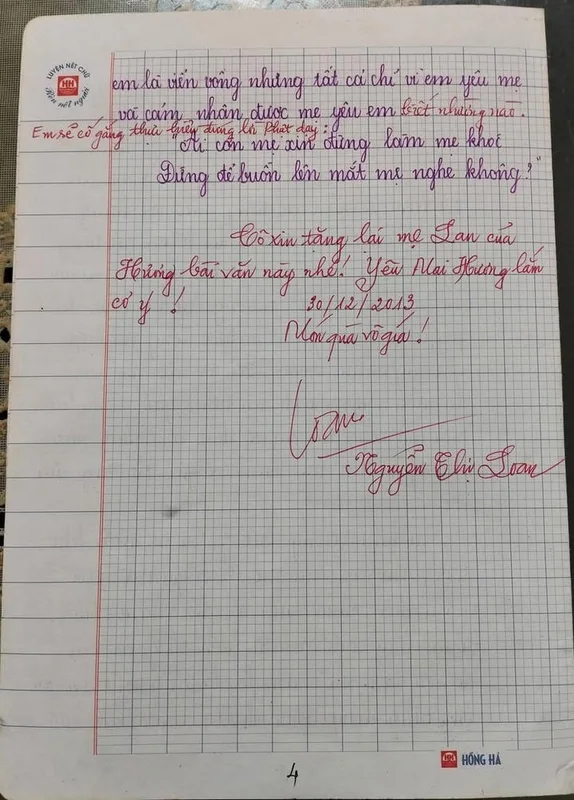 LUYỆN NÉT CHỮ
HH
Rèn nết người
em là viển vông nhưng tất cả chỉ vì em yêu mẹ
và cảm nhận được mẹ yêu em biết nhường nào.
Em sẽ cố gắng thực hiện đúng lời Phật dạy:
"Ai còn mẹ xin đừng làm mẹ khóc
Đừng để buồn lên mắt mẹ nghe không!"
Cô xin tặng lại mẹ Lan của
Hương bài văn này nhé! Yêu Mai Hương lắm
cơ ý !
30/12/2013
Món quà vô giá!
Loan
Nguyễn Thị Loan
HH HỒNG HÀ
4